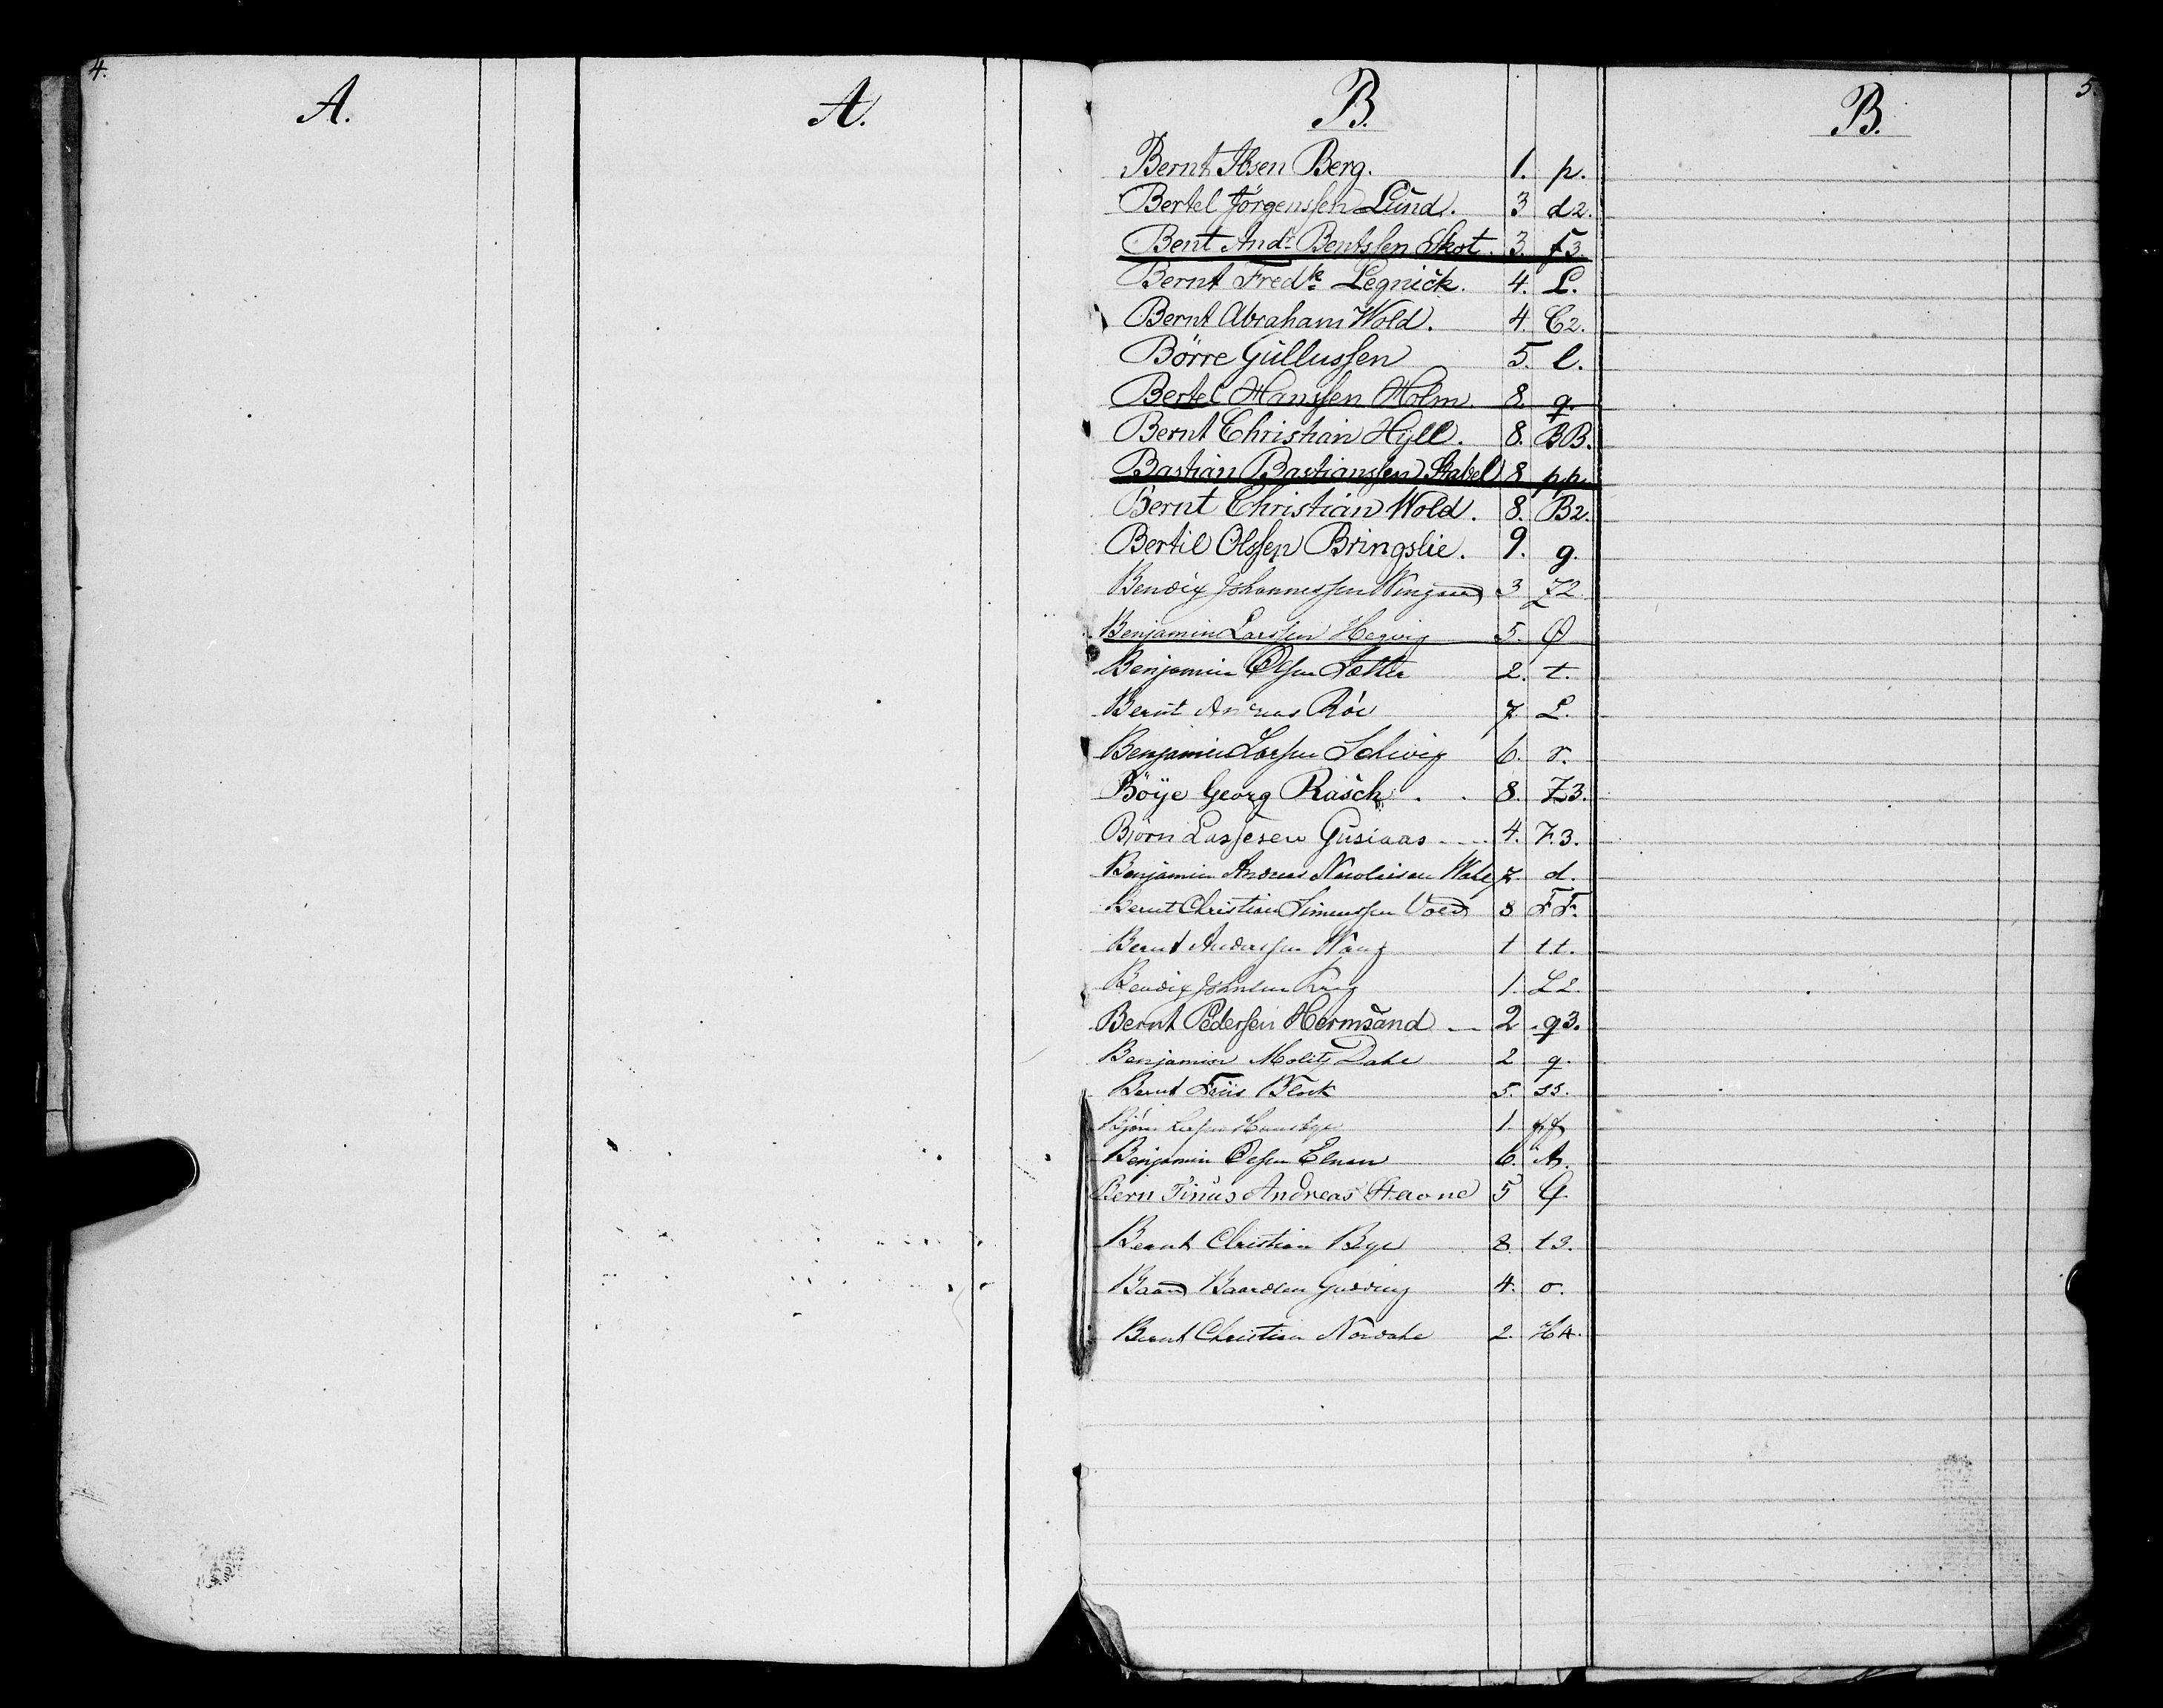 4.
A.
A.
B.
B.
5.
Bernt Ibsen Berg. 1. p.
Bertel Jörgenssen Lund. 3 d2.
Bent Andr Bentssen Skot. 3. f3.
Bernt Fredk Legnick. 4. L.
Bernt Abraham Wold. 4. C2.
Börre Gullussen 5. l.
Bertel Hanssen Holm. 8. q.
Bernt Christian Hyll. 8. BB.
Bastian Bastianssen Stabel 8 pp.
Bernt Christian Wold. 8. B2.
Bertil Olssen Bringslie. 9. g.
Bendix Johannessen 3 Z2.
Benjamin Larssen Hegvig 5. Ø
Benjamin Olsen 2. t.
Bernt Andreas Röe 7. L.
Benjamin Larsen 6. r.
Böye Georg Rasch . . 8. Z3.
Björn Lassesen Gusiaas 4. Z.3.
Benjamin Andreas Nicolaisen 7. d.
Bernt Christian Simenssen Vold 8 FF.
Bernt Anderssen Wang 1 tt.
Bendix Johnsen 1. L2.
Bernt Pedersen Hermsand 2 q3.
Benjamin Dahl 2 q.
Bernt Friis Block 5. ss.
Björn 1. ff
Benjamin Olsen 6. A.
Bern Tinus Andreas 5 G.
Bernt Christian Bye 8. t3.
Baard Baardsen Gudding 4. o.
Bernt Christian Nordahl 2. H4.